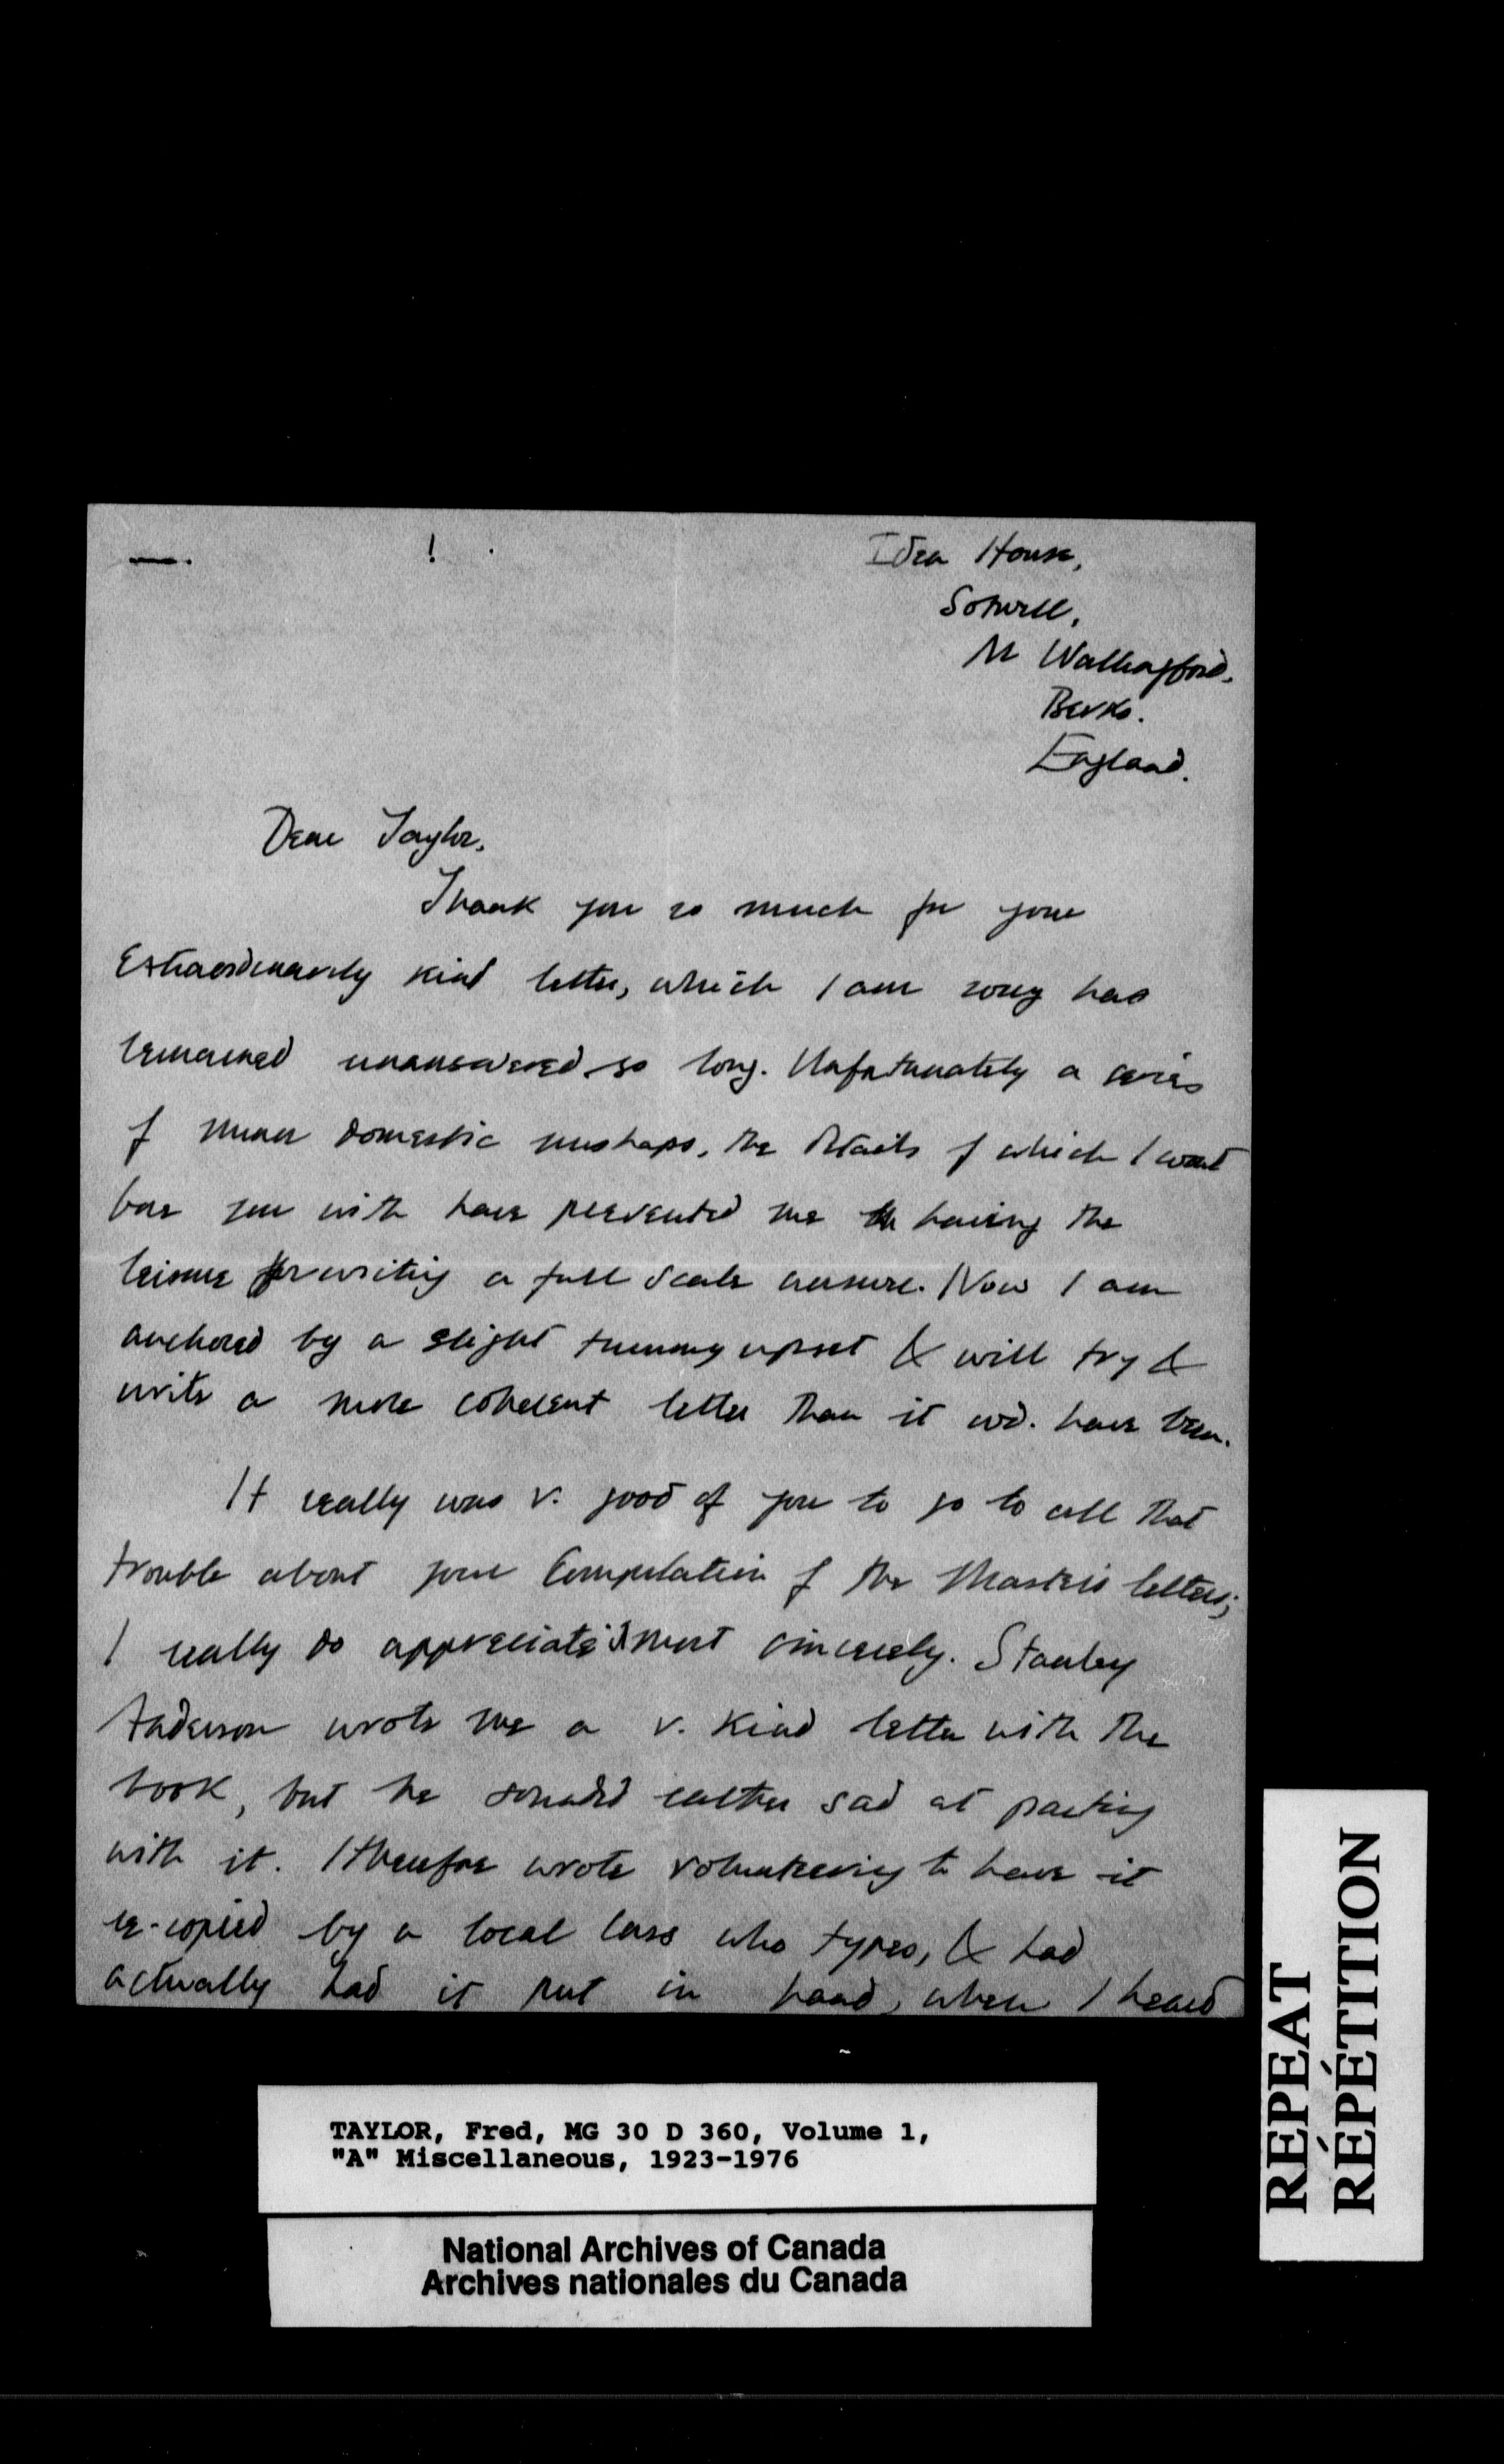 Idea House,
Sotwell,
Nr Wallingford.
Berks.
England.
Dear Taylor,
Thank you so much for your
extraordinarily kind letter, which I am sorry has
remained unanswered so long. Unfortunately a series
of minor domestic mishaps, the details of which I wont
bore you with have prevented me having the
leisure for writing a full scale answer. Now I am
anchored by a slight tummy upset & will try &
write a more coherent letter than it wd. have been.
It really was v. good of you to go to all that
trouble about your compilation of the Master's letters;
I really do appreciate it most sincerely. Stanley
Anderson wrote me a v. kind letter with the
book, but he sounded rather sad at parting
with it. I therefore wrote volunteering to have it
re-copied by a local lass who types, & had
actually had it put in hand, when I heard
TAYLOR, Fred, MG 30 D 360, Volume 1,
"A" Miscellaneous, 1923-1976
National Archives of Canada
Archives nationales du Canada
REPEAT
RÉPÉTITION